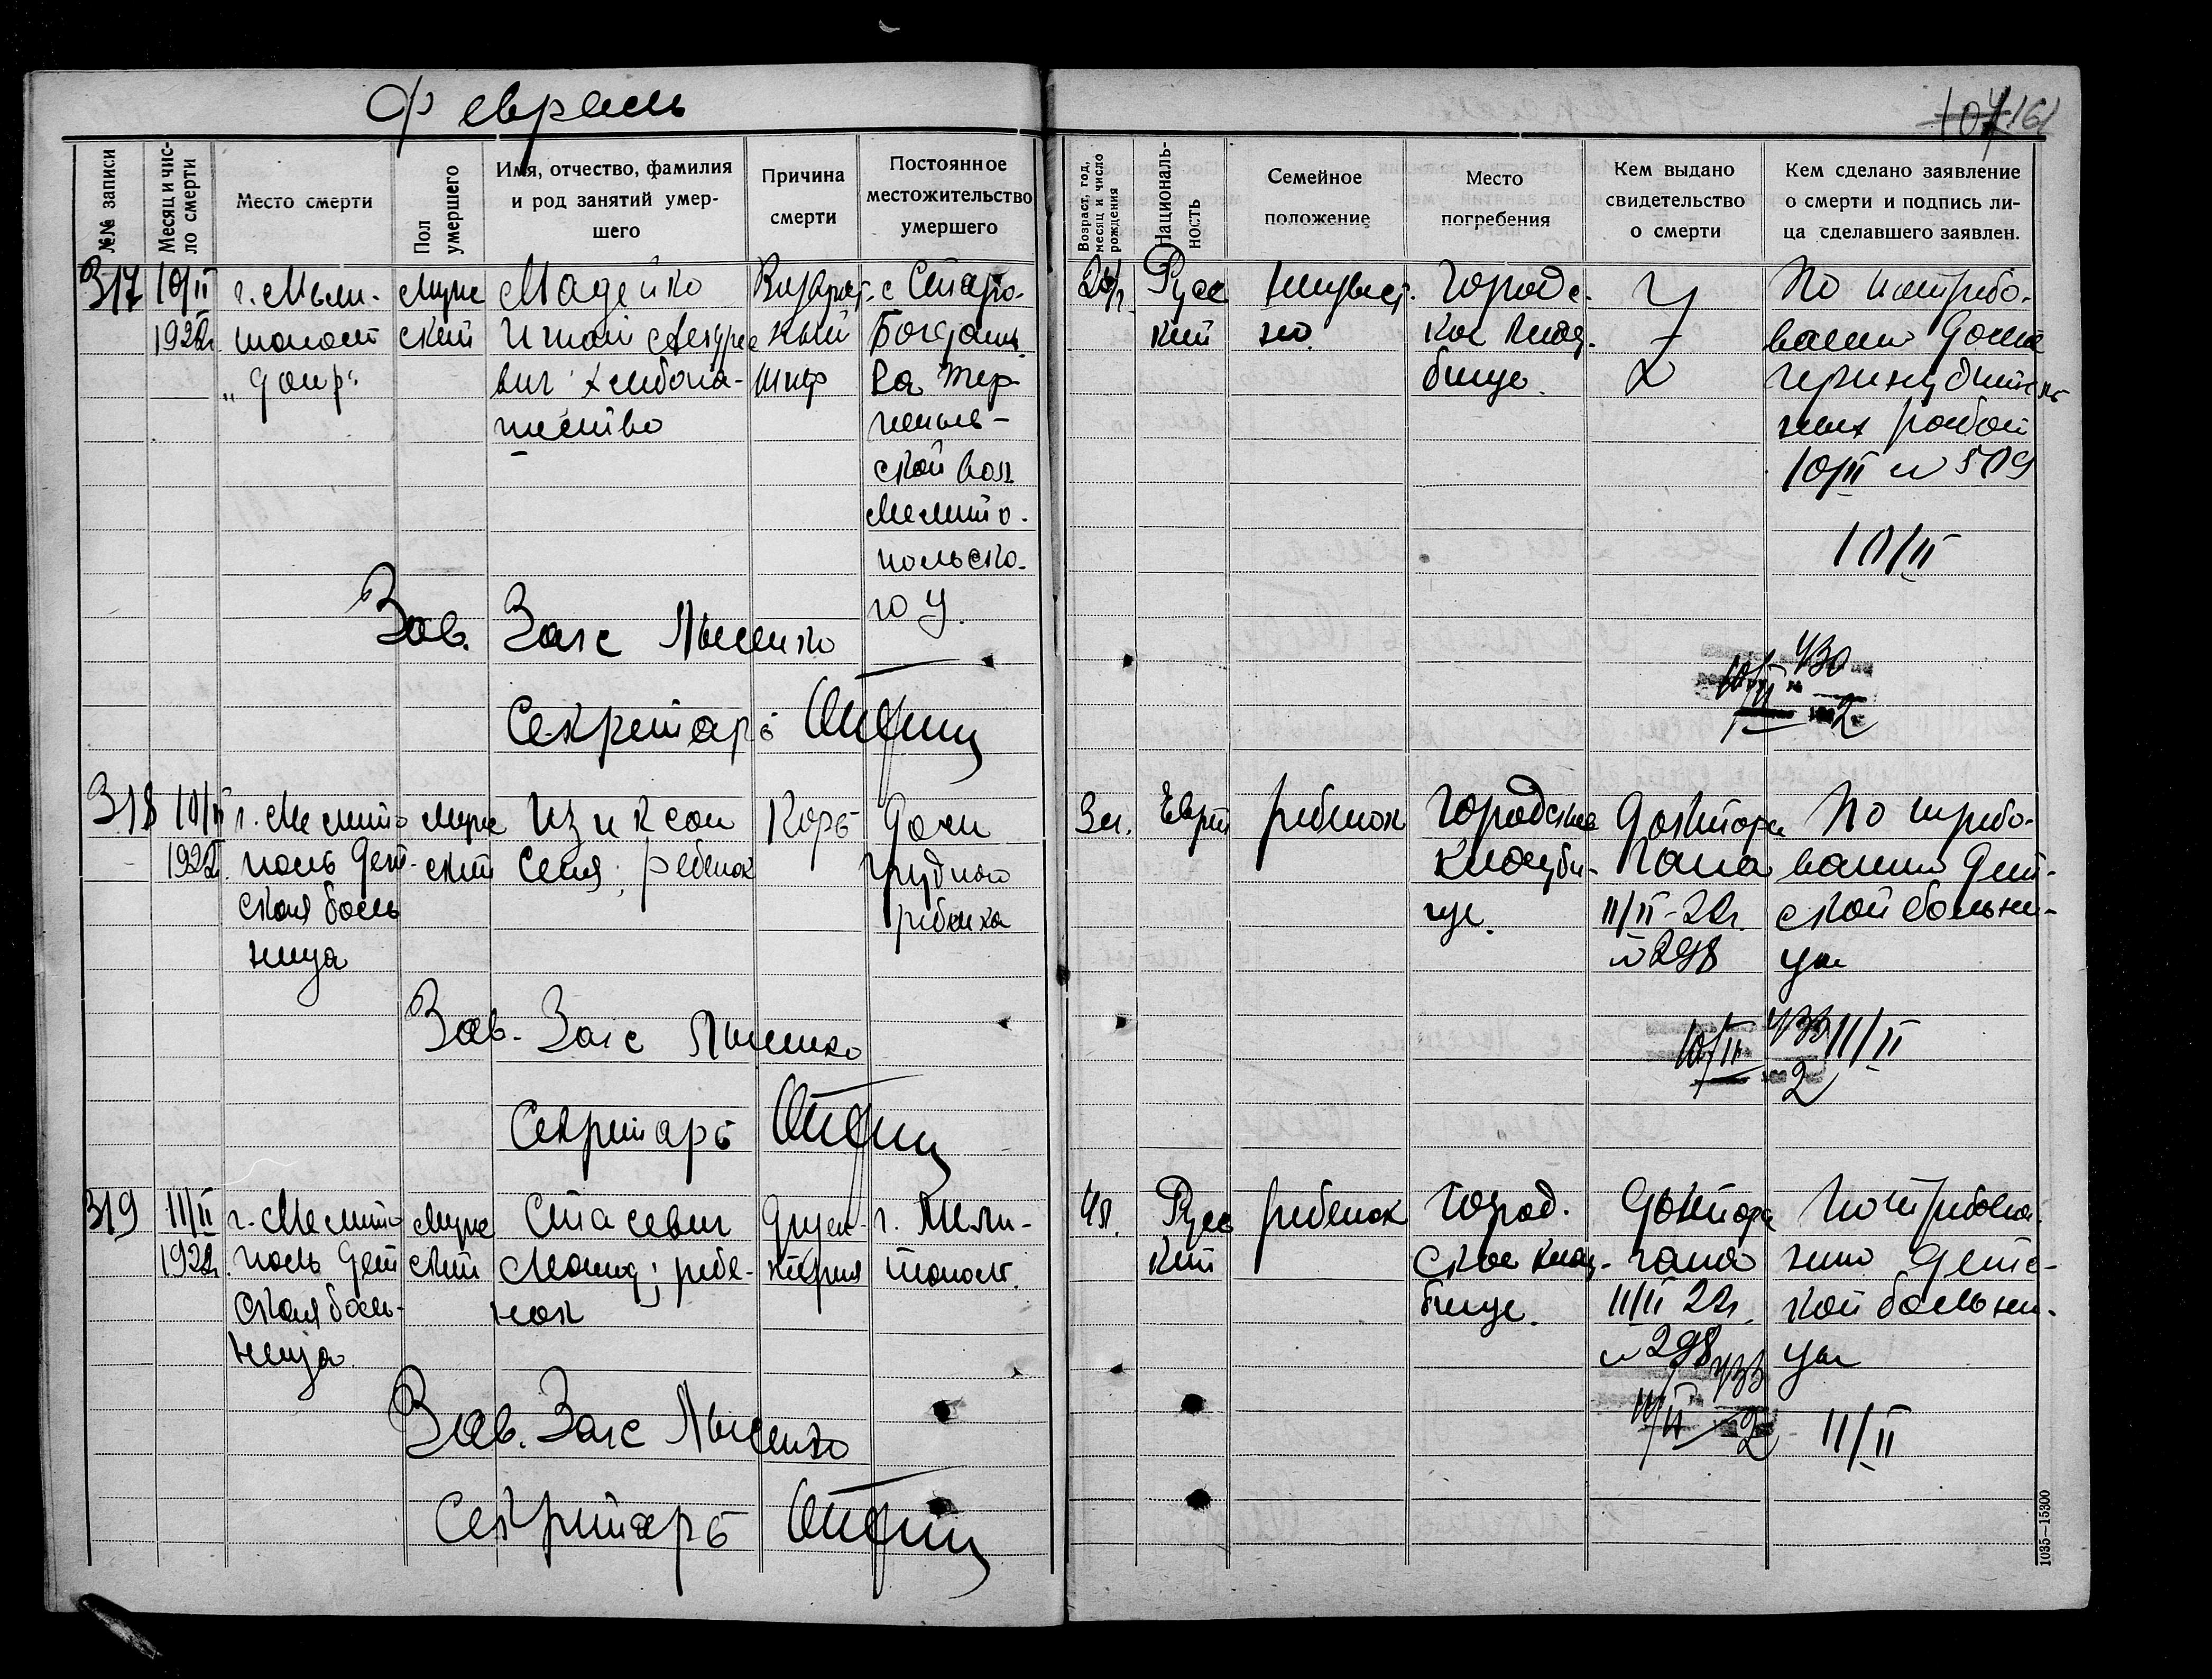 Февраль
161
№№ записи
Месяц и чис-
ло смерти
Место смерти
Пол
умершего
Имя, отчество, фамилия
и род занятий умер-
шего
Причина
смерти
Постоянное
местожительство
умершего
Возраст, год,
месяц и число
рождения
Националь-
ность
Семейное
положение
Место
погребения
Кем выдано
свидетельство
о смерти
Кем сделано заявление
о смерти и подпись ли-
ца сделавшего заявлен.
317
10/II
1922г.
г. Мели-
тополь
"
Муж
ской
Мадейко
Игнат Андрее
вич хлебопа-
шество
Возврат-
ный
тиф
с Старо-
Богданов
ка Тер-
пеньев-
ской вол.
Мелито-
польско-
го у.
Рус
кий
неизвест-
но
Городс-
кое клад-
бище.
По потребо-
ванию Дома
принудитель
ных работ
10/II № 509
10/II
430
10/II
2
Зав. Загс Лысенко
Секретарь
318
10/II
1922.
г. Мелито
поль Дет-
ская боль
ница
Муж
ской
Изиксон
Сеня, ребенок
Корь
Дом
грудного
ребенка
3 г.
Еврей
ребенок
Городское
кладби-
ще.
Доктора
Гана
11/II-22г.
№ 298
По требо-
ванию Дет-
ской больни-
цы
433
10/II
2
11/II
Зав. Загс Лысенко
Секретарь
319
11/II
1922г.
г. Мелито
поль Дет
ская боль-
ница
Муж
ской
Стасевич
Леонид; ребе-
нок
Дизен-
терия
г. Мели-
тополь.
Рус
кий
ребенок
Город.
ское клад-
бище.
Доктора
Гана
11/II 22г.
№ 298
По требова-
нию Детс-
кой больни-
цы
433
11/II
2
11/II
Зав. Загс Лысенко
Секретарь
1035—15300